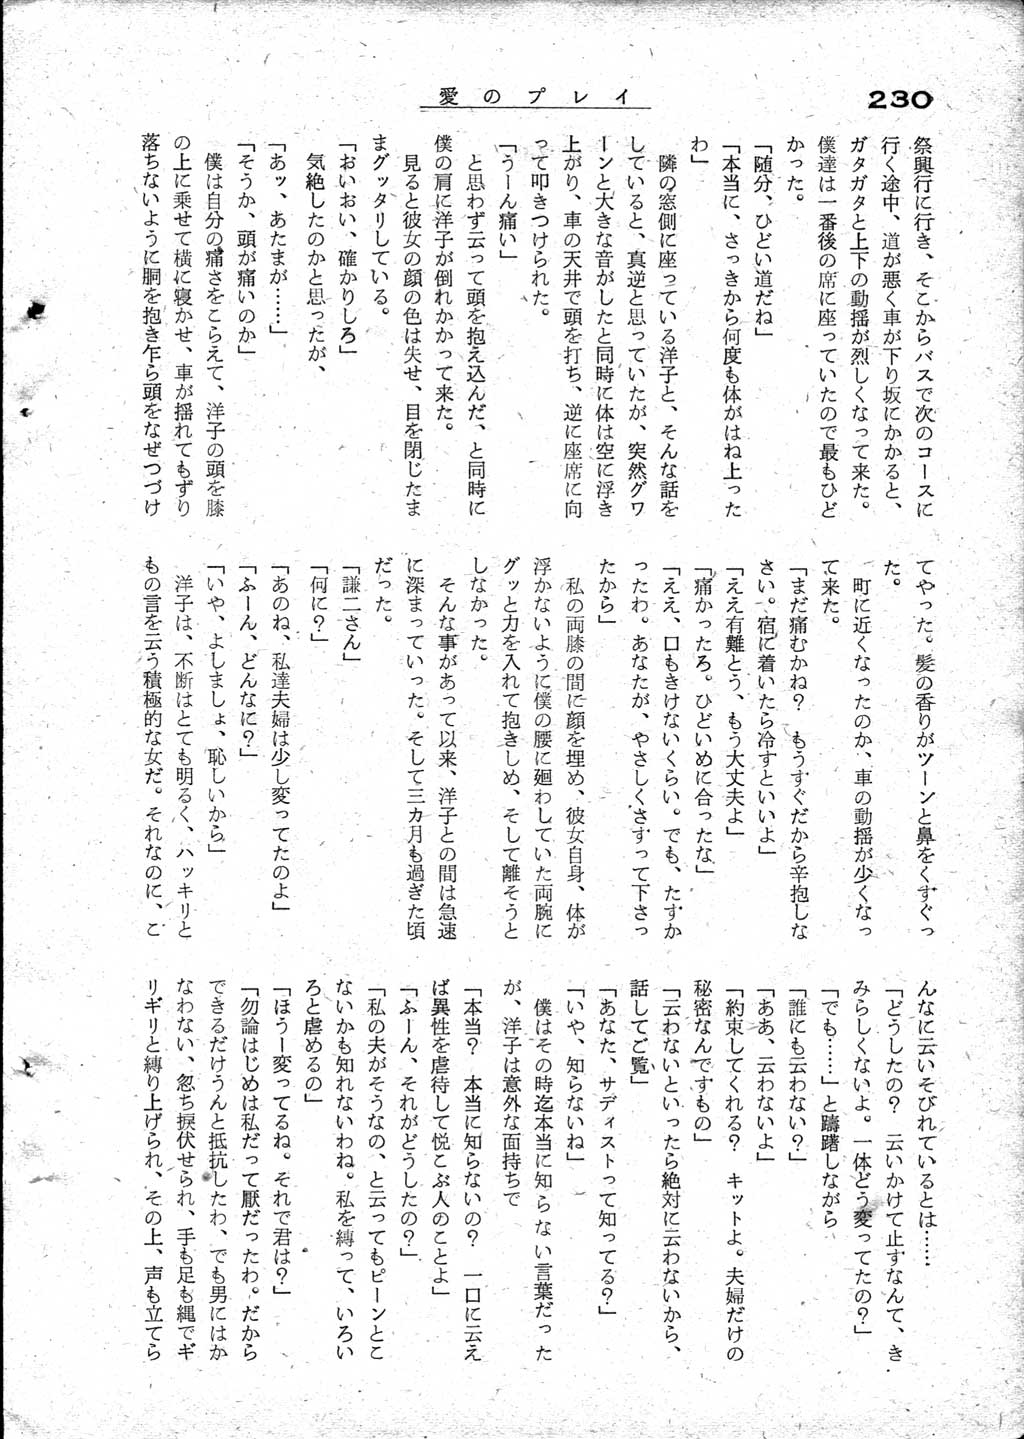 愛のプレイ
230
祭興行に行き、そこからバスで次のコースに
行く途中、道が悪く車が下り坂にかかると、
ガタガタと上下の動揺が烈しくなって来た。
僕達は一番後の席に座っていたので最もひど
かった。
「随分、ひどい道だね」
「本当に、さっきから何度も体がはね上った
わ」
　隣の窓側に座っている洋子と、そんな話を
していると、真逆と思っていたが、突然グワ
ーンと大きな音がしたと同時に体は空に浮き
上がり、車の天井で頭を打ち、逆に座席に向
って叩きつけられた。
「うーん痛い」
　と思わず云って頭を抱え込んだ、と同時に
僕の肩に洋子が倒れかかって来た。
　見ると彼女の顔の色は失せ、目を閉じたま
まグッタリしている。
「おいおい、確かりしろ」
　気絶したのかと思ったが、
「あッ、あたまが……」
「そうか、頭が痛いのか」
　僕は自分の痛さをこらえて、洋子の頭を膝
の上に乗せて横に寝かせ、車が揺れてもずり
落ちないように胴を抱き乍ら頭をなぜつづけ
てやった。髪の香りがツーンと鼻をくすぐっ
た。
　町に近くなったのか、車の動揺が少くなっ
て来た。
「まだ痛むかね？　もうすぐだから辛抱しな
さい。宿に着いたら冷すといいよ」
「ええ有難とう、もう大丈夫よ」
「痛かったろ。ひどいめに合ったな」
「ええ、口もきけないくらい。でも、たすか
ったわ。あなたが、やさしくさすって下さっ
たから」
　私の両膝の間に顔を埋め、彼女自身、体が
浮かないように僕の腰に廻わしていた両腕に
グッと力を入れて抱きしめ、そして離そうと
しなかった。
　そんな事があって以来、洋子との間は急速
に深まっていった。そして三カ月も過ぎた頃
だった。
「謙二さん」
「何に？」
「あのね、私達夫婦は少し変ってたのよ」
「ふーん、どんなに？」
「いや、よしましょ、恥しいから」
　洋子は、不断はとても明るく、ハッキリと
もの言を云う積極的な女だ。それなのに、こ
んなに云いそびれているとは……
「どうしたの？　云いかけて止すなんて、き
みらしくないよ。一体どう変ってたの？」
「でも……」と躊躇しながら
「誰にも云わない？」
「ああ、云わないよ」
「約束してくれる？　キットよ。夫婦だけの
秘密なんですもの」
「云わないといったら絶対に云わないから、
話してご覧」
「あなた、サディストって知ってる？」
「いや、知らないね」
　僕はその時迄本当に知らない言葉だった
が、洋子は意外な面持ちで
「本当？　本当に知らないの？　一口に云え
ば異性を虐待して悦こぶ人のことよ」
「ふーん、それがどうしたの？」
「私の夫がそうなの、と云ってもピーンとこ
ないかも知れないわね。私を縛って、いろい
ろと虐めるの」
「ほうー変ってるね。それで君は？」
「勿論はじめは私だって厭だったわ。だから
できるだけうんと抵抗したわ、でも男にはか
なわない、忽ち捩伏せられ、手も足も縄でギ
リギリと縛り上げられ、その上、声も立てら